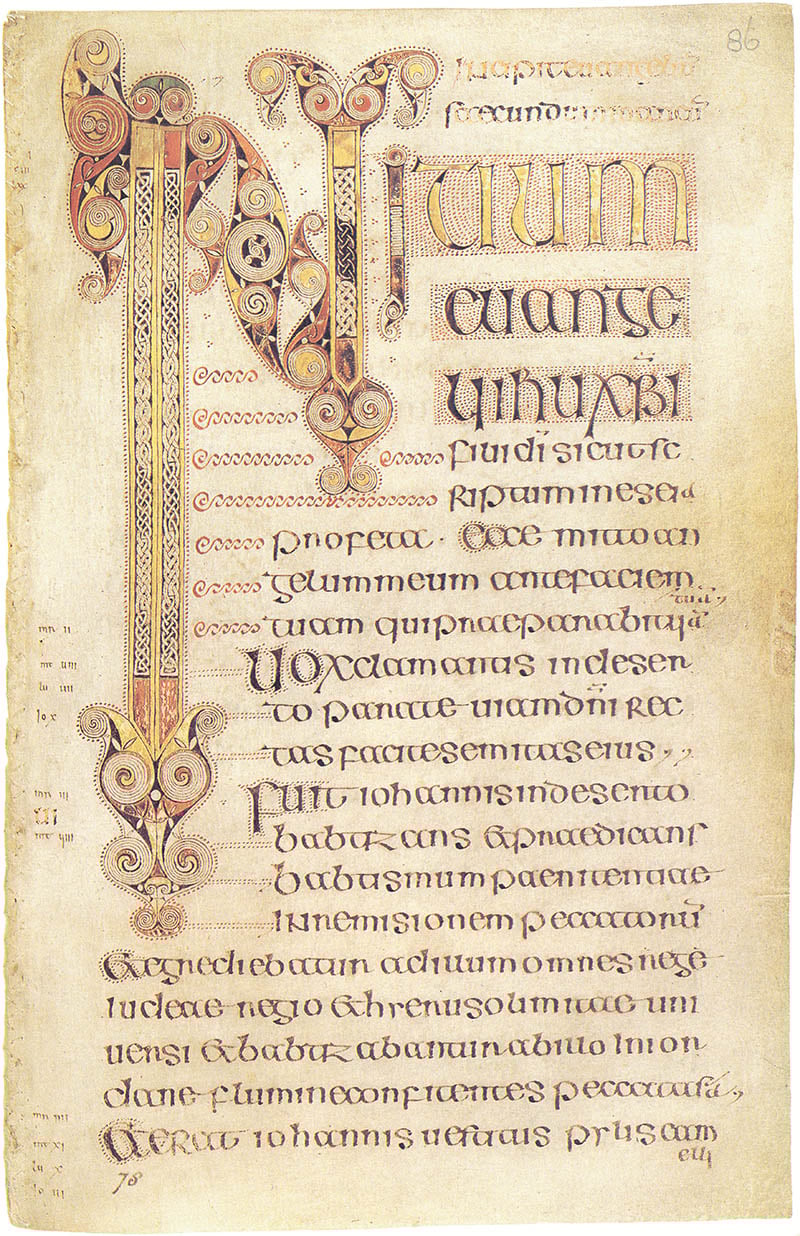 86
Incipit euangeliū
secundum
INitium
euange
lii ihu xp̄i
filii dī sicut sc
riptum in eseia
profeta · Ecce mitto an
gelum meum ante faciem
tuā
tuam qui praeparabit uiā
Uox clamantis in deser
to parate uiam dn̄i rec
tas facite semitas eius
fuit iohannis in deserto
babtizans & praedicans
babtismum paenitentiae
in remisionem peccatorū
& egrediebatur ad illum omnes rege
iudeae regio & hierusolimitae uni
uersi & babtizabantur ab illo in ior
dane flumine confitentes peccata sā
& erat iohannis uestitus pylis cam
elli
78